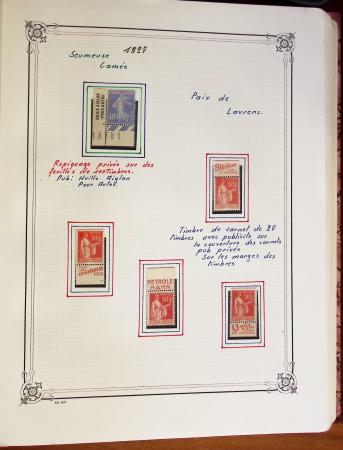 Semeuse 1927
Camée
Paix de
Laurens.
Repiquage privée sur des
feuilles de 100 Timbres.
Pub: Huille Aiglon
Pour Autos.
Timbre de carnet de 20
timbres avec publicité sur
la couverture des carnets
pub privée
Sur les marges des
timbres
PÉTROLE
HAHN